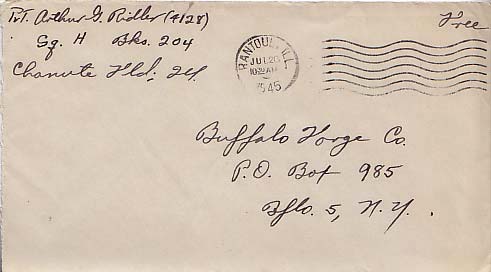 Pvt. Arthur G. Ridler (4128)
Sq. H Bks. 204
Chanute Fld; Ill.
Free
RANTOUL, ILL.
JUL 20
10:30 AM
1945
Buffalo Forge Co.
P.O. Box 985
Bflo. 5, N.Y.